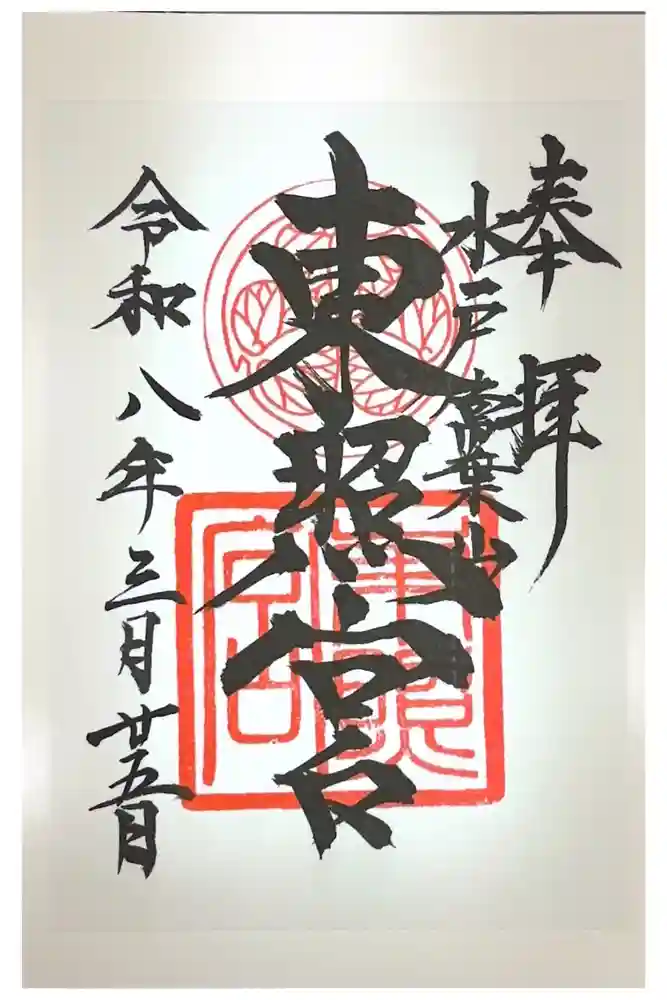 奉拝
水戸 常葉山
東照宮
令和八年三月廿五日